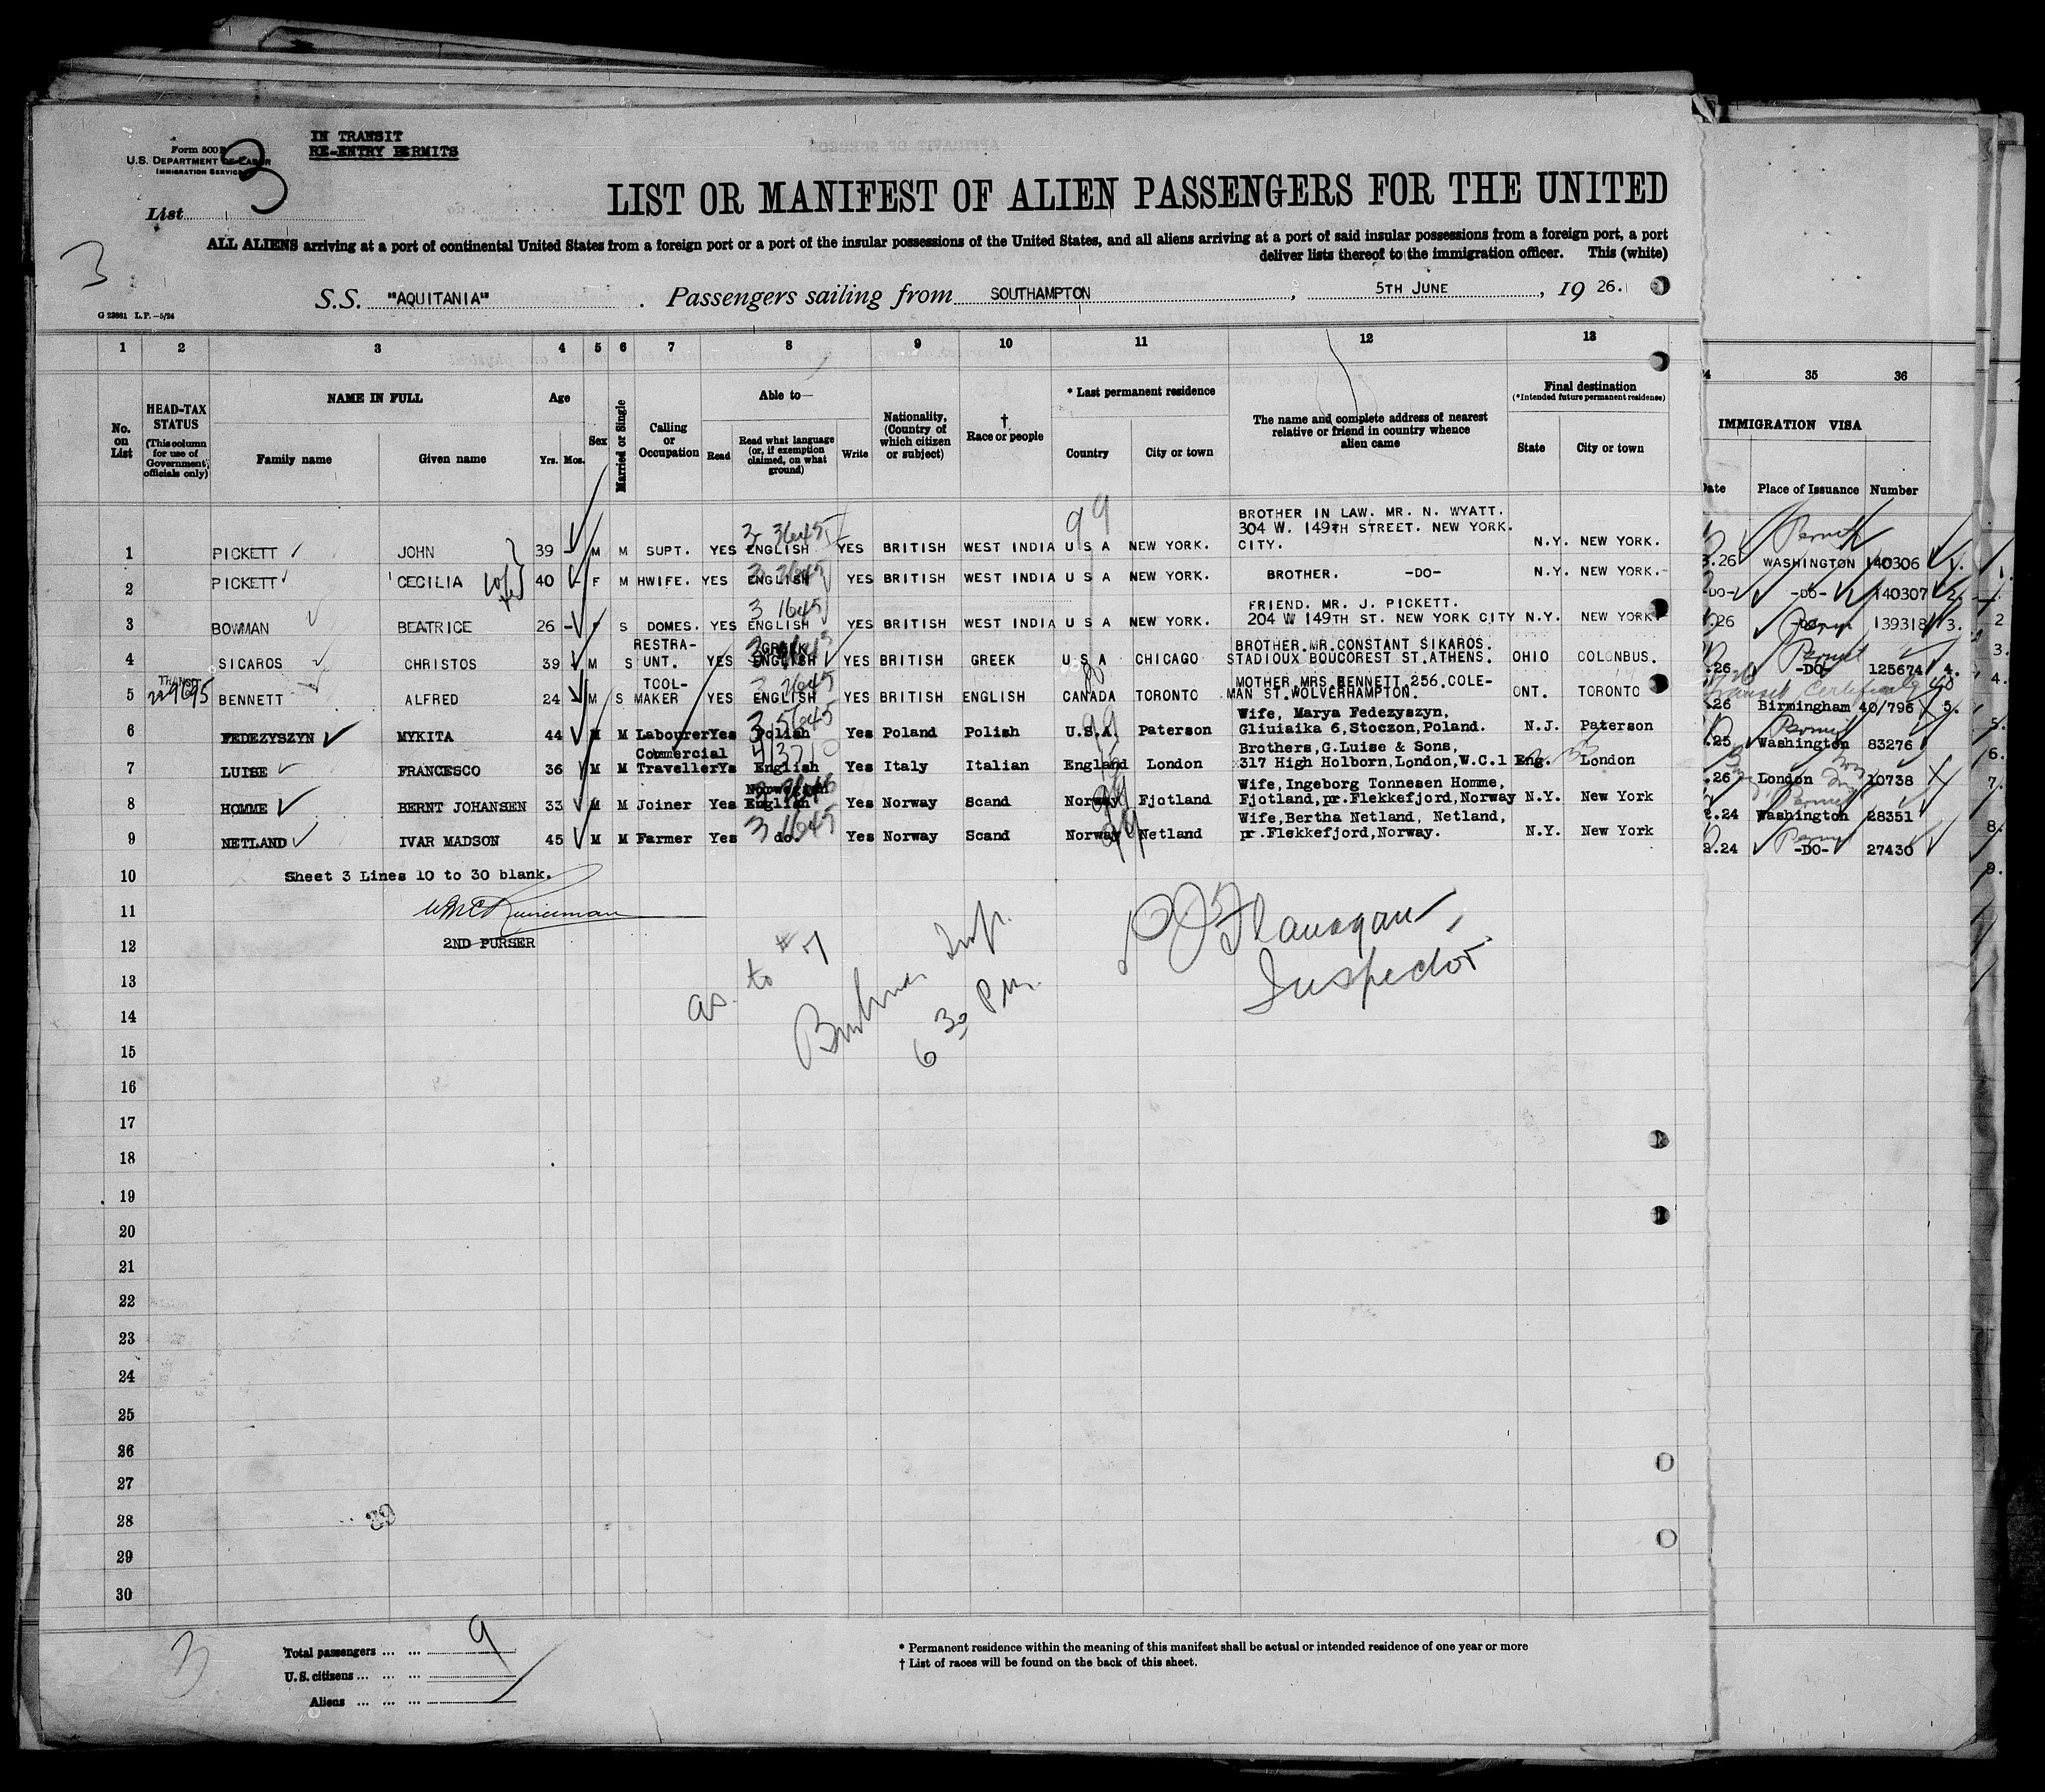 IN TRANSIT
RE-ENTRY PERMITS
Form 500
U.S. DEPARTMENT OF LABOR
IMMIGRATION SERVICE
3
List
3
LIST OR MANIFEST OF ALIEN PASSENGERS FOR THE UNITED
ALL ALIENS arriving at a port of continental United States from a foreign port or a port of the insular possessions of the United States, and all aliens arriving at a port of said insular possessions from a foreign port, a port
deliver lists thereof to the immigration officer. This (white)
S.S. "AQUITANIA". Passengers sailing from SOUTHAMPTON, 5TH JUNE, 19 26.
G 23861 L.P.—5/24
1 2 3 4 5 6 7 8 9 10 11 12 13 35 36
No. on List
HEAD-TAX STATUS
(This column for use of Government officials only)
NAME IN FULL
Family name Given name
Age
Yrs. Mos.
Sex
Married or Single
Calling or Occupation
Able to—
Read
Read what language (or, if exemption claimed, on what ground)
Write
Nationality, (Country of which citizen or subject)
† Race or people
* Last permanent residence
Country City or town
The name and complete address of nearest relative or friend in country whence alien came
Final destination
(*Intended future permanent residence)
State City or town
IMMIGRATION VISA
Date Place of Issuance Number
1 PICKETT JOHN 39 - M M SUPT. YES ENGLISH YES BRITISH WEST INDIA U S A NEW YORK. BROTHER IN LAW. MR. N. WYATT. 304 W. 149TH STREET. NEW YORK. CITY. N.Y. NEW YORK. .26 WASHINGTON 140306 1.
2 PICKETT CECILIA wife 40 - F M HWIFE. YES ENGLISH YES BRITISH WEST INDIA U S A NEW YORK. BROTHER. -DO- N.Y. NEW YORK. -DO- -DO- 140307 2.
3 BOWMAN BEATRICE 26 - F S DOMES. YES ENGLISH YES BRITISH WEST INDIA U S A NEW YORK. FRIEND. MR. J. PICKETT. 204 W 149TH ST. NEW YORK CITY N.Y. NEW YORK. .26 139318 3.
4 SICAROS CHRISTOS 39 M S RESTRA-UNT. YES GREEK ENGLISH YES BRITISH GREEK U.S.A CHICAGO BROTHER.MR.CONSTANT SIKAROS. STADIOUX BOUCOREST ST.ATHENS. OHIO COLONBUS. .26 -DO- 125674 4.
5 TRANSIT BENNETT ALFRED 24 M S TOOL-MAKER YES ENGLISH YES BRITISH ENGLISH CANADA TORONTO MOTHER MRS BENNETT.256.COLE-MAN ST.WOLVERHAMPTON. ONT. TORONTO Transit Certificate .26 Birmingham 40/796 5.
6 FEDEZYSZYN MYKITA 44 M M Labourer Yes Polish Yes Poland Polish U.S.A. Paterson Wife, Marya Fedezyszyn, Gliuiaika 6,Stoczon,Poland. N.J. Paterson .25 Washington 83276 6.
7 LUISE FRANCESCO 36 M M Commercial Traveller Ys English Yes Italy Italian England London Brothers,G.Luise & Sons, 317 High Holborn,London,W.C.1 Eng. London .26 London 10738 7.
8 HOMME BERNT JOHANSEN 33 M M Joiner Yes Norwegian English Yes Norway Scand Norway Fjotland Wife,Ingeborg Tonnesen Homme, Fjotland,pr.Flekkefjord,Norway N.Y. New York .24 Washington 28351 8.
9 NETLAND IVAR MADSON 45 M M Farmer Yes do. Yes Norway Scand Norway Netland Wife,Bertha Netland, Netland, pr.Flekkefjord,Norway. N.Y. New York .24 -DO- 27430 9.
10 Sheet 3 Lines 10 to 30 blank.
11
12 2ND PURSER
as to #7
6 30 P.M.
Flanagan
Inspector
13
14
15
16
17
18
19
20
21
22
23
24
25
26
27
28 39
29
30
3
Total passengers ... ... 9
U.S. citizens ... ...
Aliens ... ... ...
* Permanent residence within the meaning of this manifest shall be actual or intended residence of one year or more
† List of races will be found on the back of this sheet.